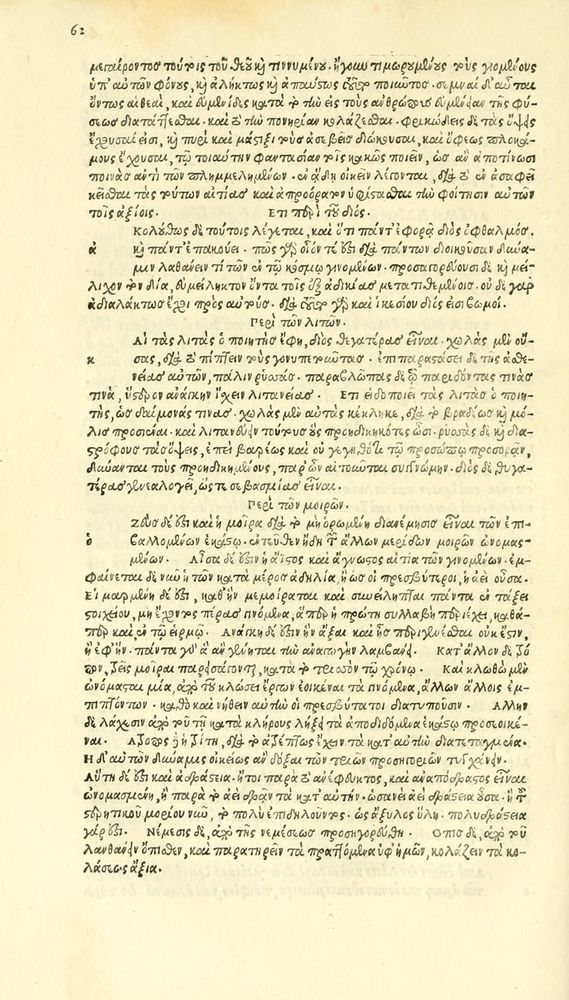 62
μεγαίροντος τοῦτις τοῦ θεοῦ καὶ τιννυμένου. ἤγουν τιμωρουμένους τοὺς γιομένους
ὑπ' αὐτῶν φόνους, καὶ ἀλήκτως καὶ ἀπαύστως τοῦτο ποιοῦσαι. σεμναὶ δ' αὗται
ὄντως αἱ θεαὶ, καὶ εὐμενίδες κατὰ τὸ τὴν εἰς τοὺς ἀνθρώπους εὐμένειαν τῆς φύ-
σεως διατάττεσθαι. καὶ τὸ τὴν πονηρίαν κολάζεσθαι. φρικώδεις δὲ τὰς ὄψεις
ἔχουσαί εἰσι, καὶ πυρὶ καὶ μάστιξι τοὺς ἀσεβεῖς διώκουσαι, καὶ ὄφεως πλοκά-
μους ἔχουσαι, τῷ τοιαύτην φαντασίαν τοῖς κακῶς ποιεῖν, ὡς ἂν ἀποτίνωσι
ποινὰς ἀντὶ τῶν πλημμελημάτων. ἐν ᾅδη οἰκεῖν λέγονται, διὰ τὸ ἐν ἀσαφεῖ
κεῖσθαι τὰς τούτων αἰτίας καὶ ἀπρόορατον ὑφίστασθαι τὴν φοίτησιν αὐτῶν
τοῖς ἀξίοις. Ἔτι περὶ τοῦ διός.
Ἀκολούθως δὲ τούτοις λέγεται, καὶ ὅτι πάντ' ἐφορᾷ διὸς ὀφθαλμός,
ἀ καὶ πάντ' ἐπακούει. πῶς γὰρ οἷόν τέ ἐστι διὰ πάντων διοικοῦσαν δύνα-
μιν λαθάνειν τὶ τῶν ἐν τῷ κόσμῳ γινομένων. προσαγορεύουσι δὲ καὶ μεί-
λιχον τὸν δία, εὐμείλικτον ὄντα τοῖς ἐξ ἀδικίας μετατιθεμένοις. οὐ δὲ γὰρ
ἀδιαλάκτως ἔχει πρὸς αὐτούς. διὰ τοῦτο γὰρ καὶ ἱκεσίου διός εἰσι βωμοί.
Περὶ τῶν λιτῶν.
Αἱ τὰς λιτὰς ὁ ποιητὴς ἔφη, διὸς θυγατέρας εἶναι. χωλὰς μὲν οὔ-
κ σας, διὰ τὸ πίπτειν τοὺς γονυπετοῦντας. ἐπὶ παραστάσει δὲ τῆς ἀσθε-
νείας αὐτῶν, πάλιν ῥυσάς. παραβλῶπας δὲ τῷ παριδόντας τινάς
τινὰ, ὕστερον ἀνάγκην ἔχειν λιτανείας. Ἔτι εἰδοποιεῖ τὰς λιτὰς ὁ ποιη-
τὴς, ὡς δαίμονάς τινας. χωλὰς μὲν αὐτὰς κέκληκε, διὰ τὸ βραδέως καὶ μό-
λις προσιέναι. καὶ λιτανεύειν τούτους οὓς προηδικηκότες ὦσι. ῥυσὰς δὲ καὶ δια-
στρόφους τὰς ὄψεις, ἐπεὶ βαρέως καὶ οὐ γεγηθότι τῷ προσώπῳ προσορᾶν,
δύνανται τοὺς προηδικημένους, παρ' ὧν αἰτοῦνται συγγνώμην. διὸς δὲ θυγα-
τέρας γενεαλογεῖ, ὥστε σεβασμίας εἶναι.
Περὶ τῶν μοιρῶν.
Ζεὺς δέ ἐστι καὶ ἡ μοῖρα διὰ τὸ μὴ ὁρωμένη διανέμησις εἶναι τῶν ἐπι-
ὁ βαλλομένων ἑκάστῳ. ἐντεῦθεν ἤδη τῶν ἄλλων μερίδων μοιρῶν ὠνομασ-
μένων. Αἶσα δέ ἐστιν ἡ ἄϊστος καὶ ἄγνωστος αἰτία τῶν γινομένων. ἐμ-
φαίνεται δὲ νῦν ἡ τῶν κατὰ μέρος ἀδηλία, ἢ ὡς οἱ πρεσβύτεροι, ἡ ἀεὶ οὖσα.
Εἱμαρμένη δέ ἐστι, καθ' ἣν μεμοίραται καὶ συνείληπται πάντα ἐν τάξει
στοιχείου, μὴ ἔχοντος πέρας γινόμενα, ἅπερ ἡ πρώτη συλλαβὴ περιέχει, καθά-
περ καὶ ἐν τῷ εἱρμῷ. Ἀνάγκη δέ ἐστιν ἣν ἄξαι καὶ ἧς περιγενέσθαι οὐκ ἔστιν,
ἢ ἐφ' ἣν. πάντα γ' ὃ ἂν γένηται τὴν ἀναγωγὴν λαμβάνει. Κατ' ἄλλον δὲ τρό-
πον, τρεῖς μοῖραι παρεισάγονται, κατὰ τὸ τρισσὸν τῷ χρόνῳ. Καὶ κλωθὼ μὲν
ὠνόμασται μία, ἀπὸ τοῦ κλώσει ἐρίων ἐοικέναι τὰ γινόμενα, ἄλλων ἄλλοις ἐμ-
πιπτόντων. καθὸ καὶ νήθειν αὐτὴν οἱ πρεσβύτατοι διατυποῦσιν. Ἄλλην
δὲ λάχεσιν ἀπὸ τοῦ τῇ κατὰ κλήρους λήξει τὰ ἀποδιδόμενα ἑκάστῳ προσεοικέ-
ναι. Ἄτροπος δὲ ἡ τρίτη, διὰ τὸ ἀτρέπτως ἔχειν τὰ κατ' αὐτὴν διατεταγμένα.
Ἡ δ' αὐτῶν δύναμις οἰκείως ἂν δόξαι τῶν τριῶν προσηγοριῶν τυγχάνειν.
Αὕτη δέ ἐστι καὶ ἀδράστεια. ἤτοι παρὰ τὸ ἀνέφευκτος, καὶ ἀναπόδραστος εἶναι
ὠνομασμένη, ἢ παρὰ τὸ ἀεὶ δρᾶν τὰ κατ' αὐτήν. ὡσανεὶ ἀεὶ δράστεια οὖσα. ἢ τοῦ
στερητικοῦ μορίου νῦν, τὸ πολὺ ἐπιδηλοῦντος. ὡς ἄξυλος ὕλη. πολυδράστεια
γάρ ἐστι. Νέμεσις δὲ, ἀπὸ τῆς νεμέσεως προσηγορεύθη. Ὄπις δὲ, ἀπὸ τοῦ
λανθάνειν ὄπιθεν, καὶ παρατηρεῖν τὰ πραττόμενα ὑφ' ἡμῶν, κολάζειν τὰ κο-
λάσεως ἄξια.